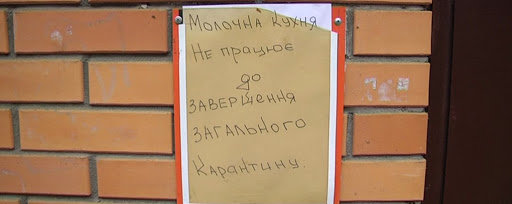 Молочна кухня
Не працює
до
завершення
загального
Карантину.